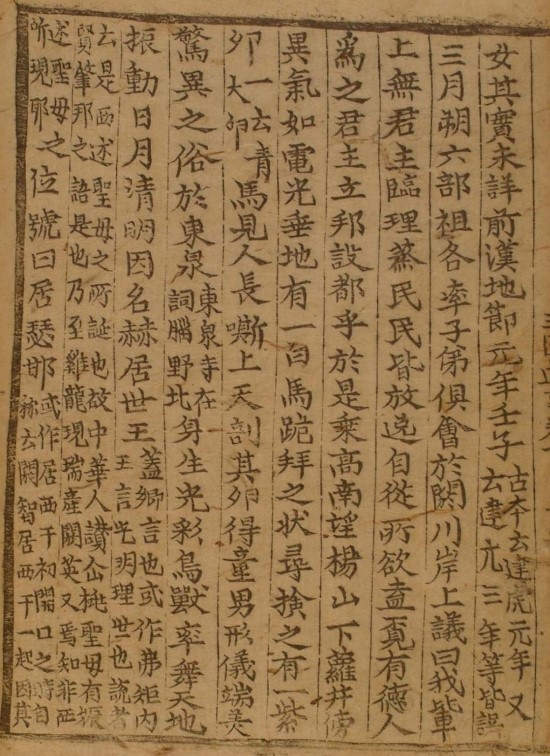 女其實未詳前漢地節元年壬子古本云建虎元年又云建元三年等皆誤
三月朔六部祖各率子弟俱會於閼川岸上議曰我軰
上無君主臨理蒸民民皆放逸自從所欲盍覔有德人
爲之君主立邦設都乎於是乗髙南望楊山下蘿井傍
異氣如電光垂地有一白馬跪拜之狀尋撿之有一紫
卵一云青大卵馬見人長嘶上天剖其卵得童男形儀端美
驚異之俗於東泉東泉寺在詞腦野北身生光彩鳥獸率舞天地
振動日月清明因名赫居世王蓋郷言也或作弗矩内王言光明理世也説者
云是西述聖母之所誕也故中華人讃仙桃聖母有娠賢肇邦之語是也乃至雞龍現瑞産閼英又焉知非西
述聖母之所現耶位號曰居瑟邯或作居西干初開口之時自稱云閼智居西干一起因其